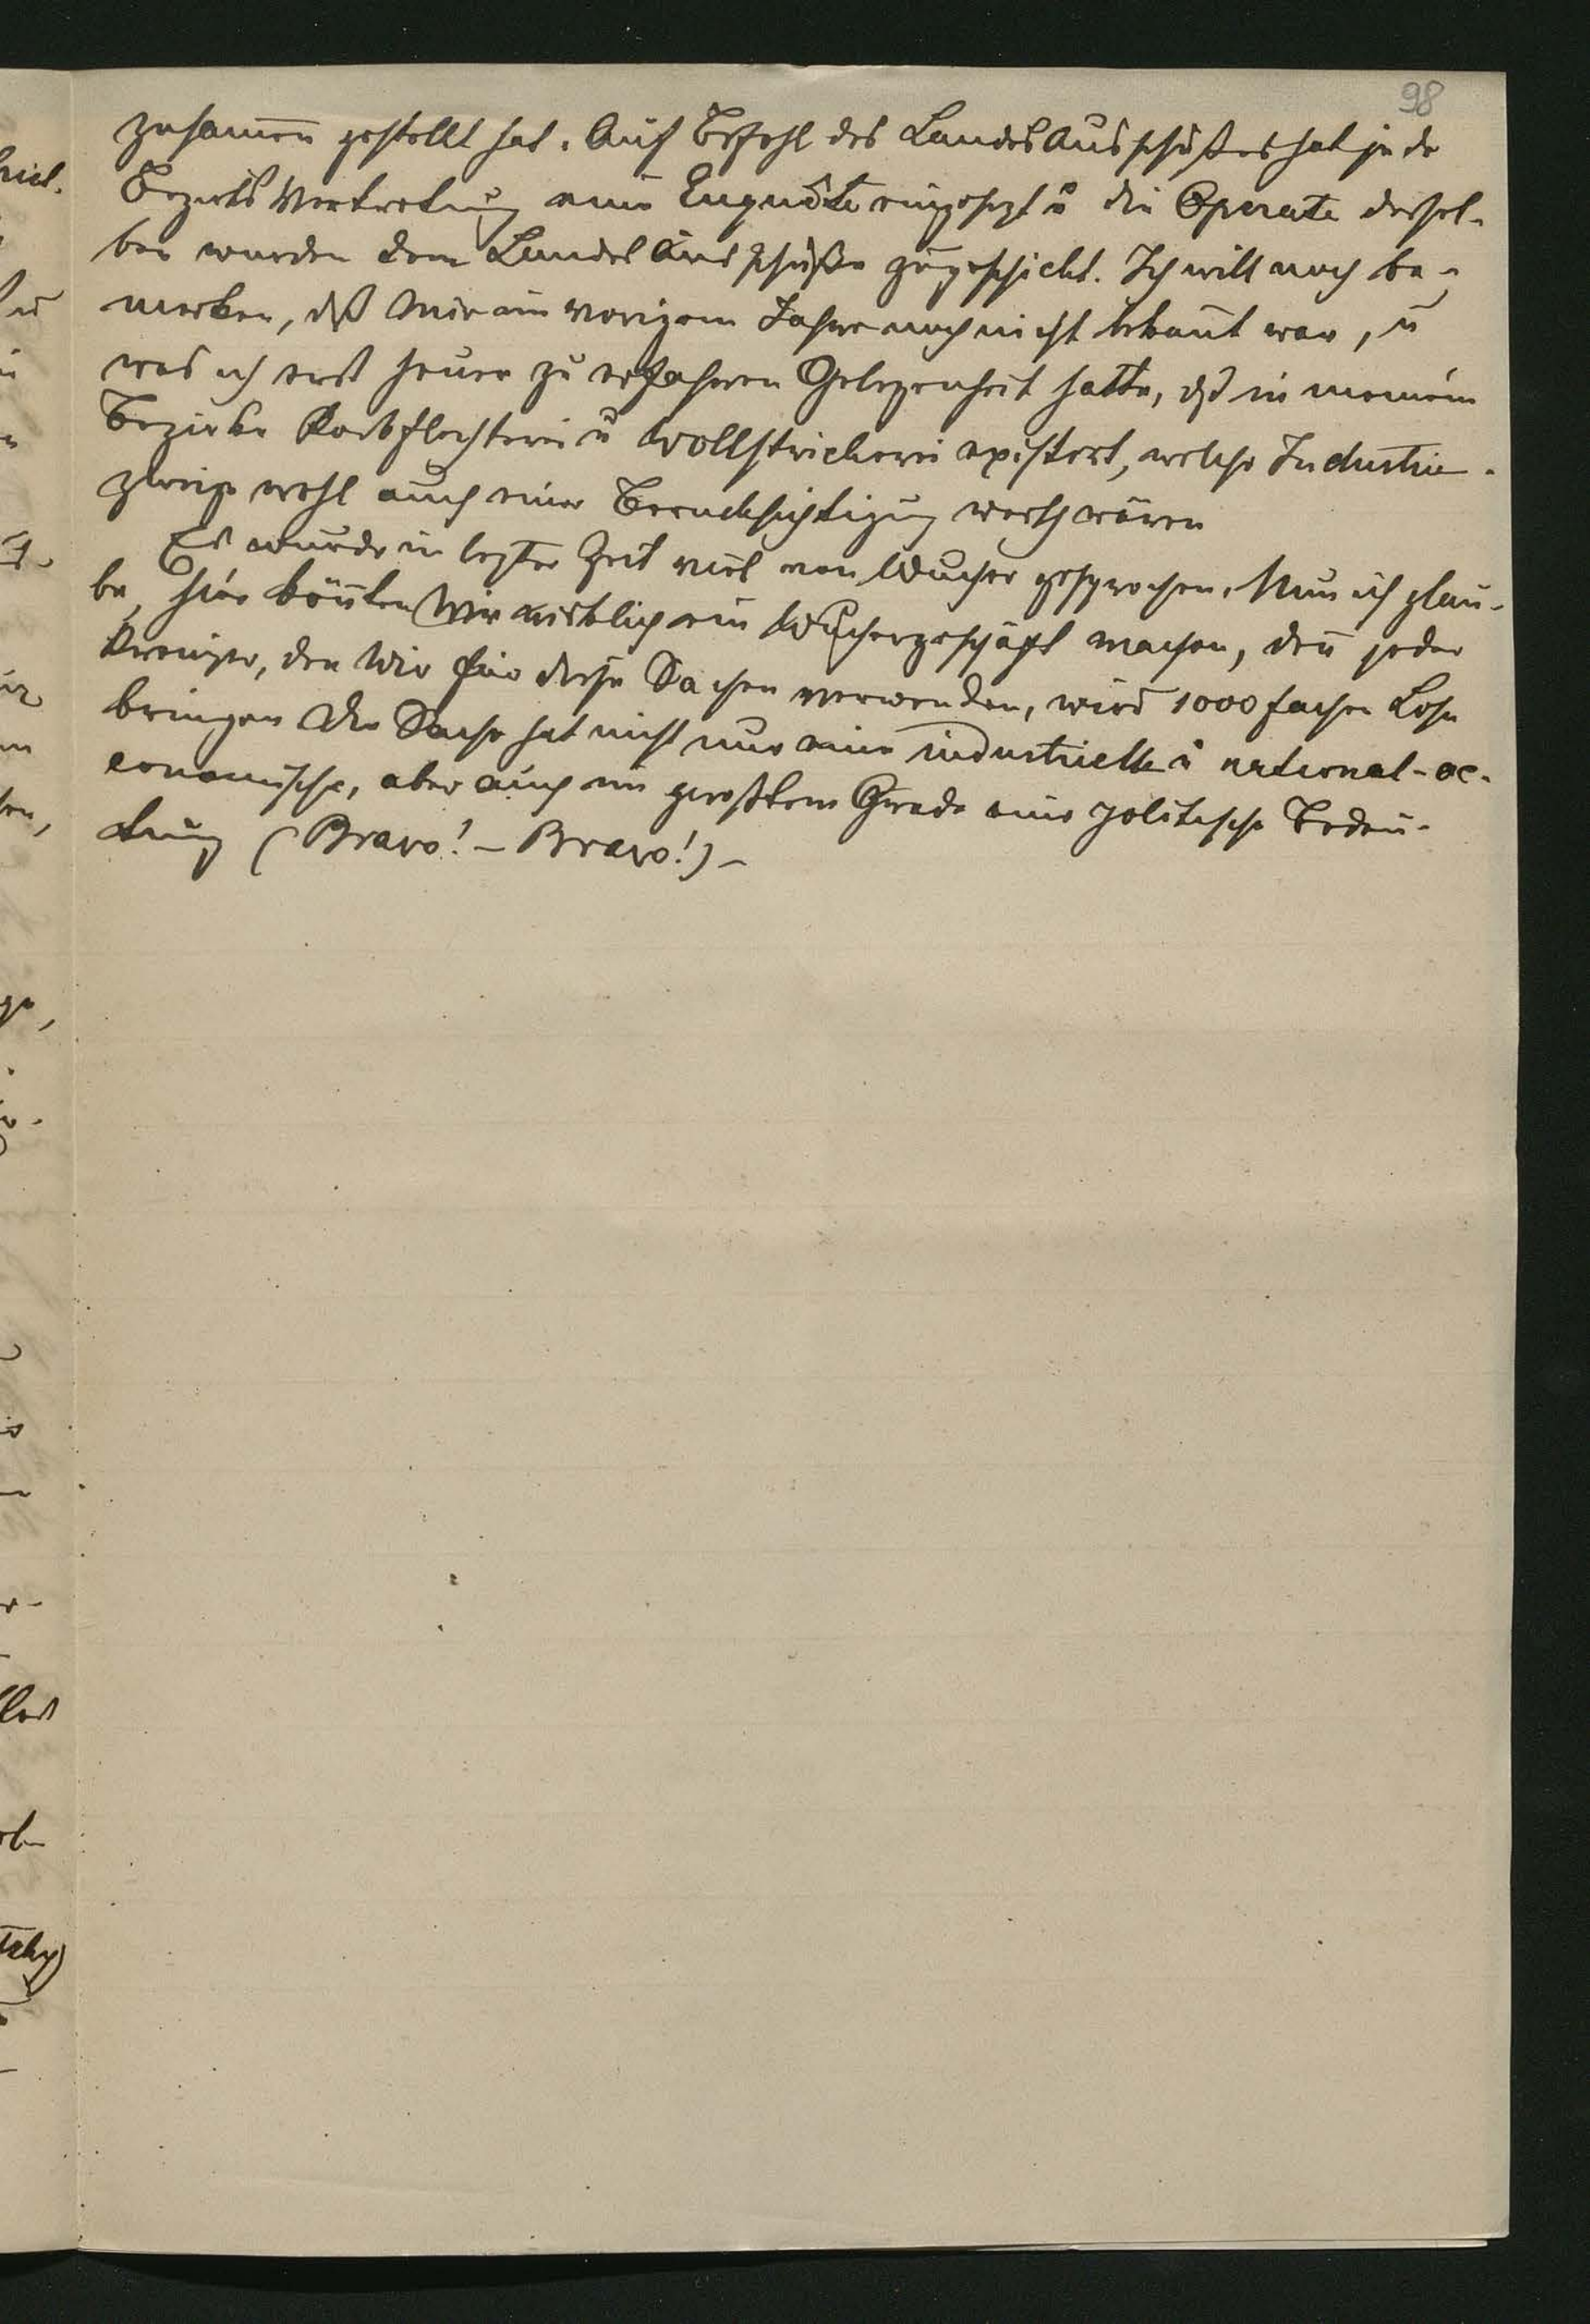 98
zusam̅en gestellt hat. Auf Befehl des LandesAusschußes hat jede
BezirksVertretung eine Enquête eingesezt u die Operate dersel-
ben wurden dem LandesAusschuße zugeschickt. Ich will noch be-
merken, dß mir im vorigem Jahre noch nicht bekan̅t war, u
was ich erst heuer zu erfahren Gelegenheit hatte, dß in meinem
Bezirke Korbflechterei u Wollstrickerei existert, welche Industrie-
zweige wohl auch einer Berucksichtigung werth wären
Es wurde in lezter Zeit viel von Wucher gesprochen. Nun ich glau-
be, hier kön̅ten wir wirklich ein Wuchergeschäft machen, den̅ jeder
Kreuzer, den Wir für diese Sachen verwenden, wird 1000 fachen Lohn
bringen Die Sache hat nicht nur eine industrielle u national-oe-
conomische, aber auch im großtem Grade eine politische Bedeu-
tung (Bravo! – Bravo!) –